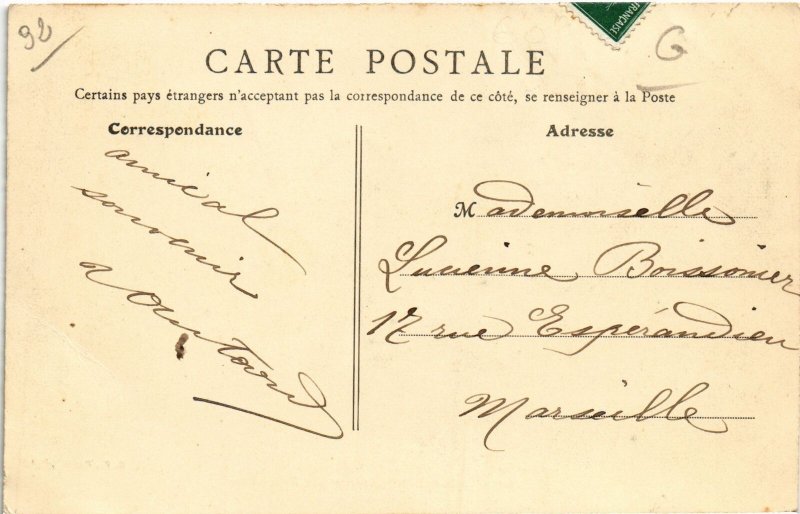 92
FRANÇAISE
G
CARTE POSTALE
Certains pays étrangers n'acceptant pas la correspondance de ce côté, se renseigner à la Poste
Correspondance
amical
souvenir
Adresse
Mademoiselle
Lucienne Boissonier
17 rue Espérandieu
Marseille